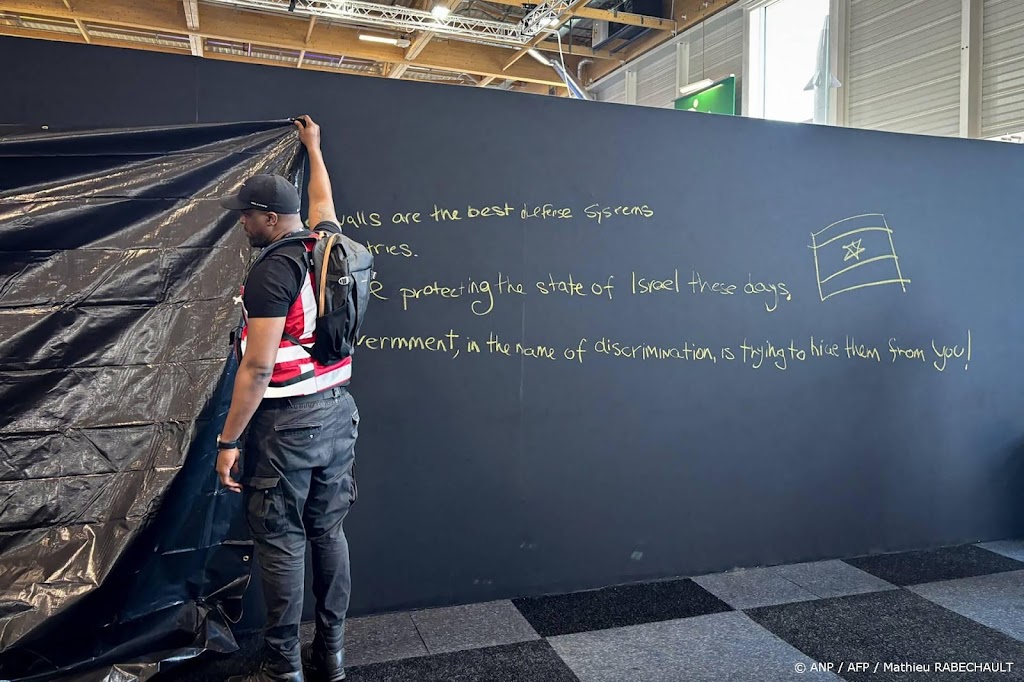 walls are the best defense Systems
tries.
protecting the state of Israel these days,
vernment, in the name of discrimination, is trying to hide them from you!
© ANP / AFP / Mathieu RABECHAULT